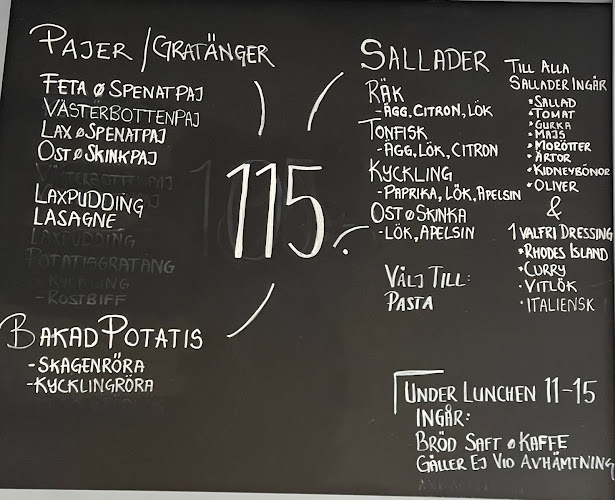 PAJER/GRATÄNGER
FETA Ø SPENATPAJ
VÄSTERBOTTENPAJ
LAX Ø SPENATPAJ
OST Ø SKINKPAJ
VÄSTERBOTTENPAJ
LAXPUDDING
LASAGNE
LAXPUDDING
POTATISGRATÄNG
- KYCKLING
- ROSTBIFF
BAKAD POTATIS
- SKAGENRÖRA
- KYCKLINGRÖRA
115:-
SALLADER
RÄK
- ÄGG, CITRON, LÖK
TONFISK
- ÄGG, LÖK, CITRON
KYCKLING
- PAPRIKA, LÖK, APELSIN
OST Ø SKINKA
- LÖK, APELSIN
VÄLJ TILL:
PASTA
TILL ALLA
SALLADER INGÅR
• SALLAD
• TOMAT
• GURKA
• MAJS
• MORÖTTER
• ÄRTOR
• KIDNEYBÖNOR
• OLIVER
&
1 VALFRI DRESSING
• RHODES ISLAND
• CURRY
• VITLÖK
• ITALIENSK
UNDER LUNCHEN 11-15
INGÅR:
BRÖD SAFT Ø KAFFE
GÄLLER EJ VID AVHÄMTNING